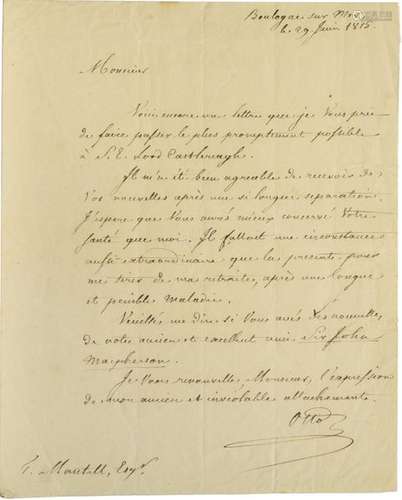 Boulogne sur Mer
le 29 Juin 1815.
Monsieur
Voici encore une lettre que je Vous prie
de faire passer le plus promptement possible
à S. E. Lord Castlereagh.
Il m'a été bien agréable de recevoir de
Vos nouvelles après une si longue separation.
J'espere que Vous avés mieux conservé Votre
santé que moi. Il falloit une circonstance
aussi extraordinaire que la presente pour
me tirer de ma retraite, après une longue
et penible maladie.
Veuillés me dire si Vous avés des nouvelles
de votre ancien et excellent ami Sir John
Macpherson.
Je Vous renouvelle, Monsieur, l'expression
de mon ancien et inviolable attachement.
Otto
Esqr.